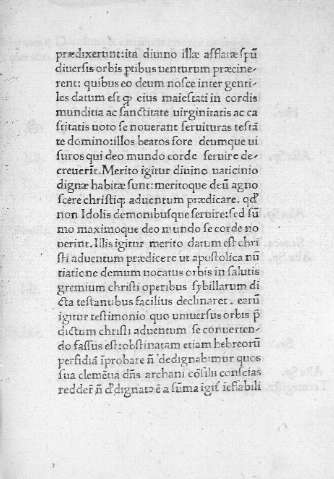 prædixerunt: ita diuino illæ afflatæ spũ
diuersis orbis ꝑtibus uenturum præcine-
rent: quibus eo deum nosce inter genti-
les datum est ꝙ eius maiestati in cordis
munditia ac sanctitate uirginitatis ac ca
stitatis uoto se nouerant seruituras testã
te domino: illos beatos fore deumque ui
suros qui deo mundo corde seruire de-
creuerĩt. Merito igitur diuino uaticinio
dignæ habitæ sunt: meritoque deũ agno
scere christiq; aduentum prædicare. qđ
non Idolis demonibusque seruire: sed sũ
mo maximoque deo mundo se corde no
uerint. Illis igitur merito datum est chri
sti aduentum prædicere ut apostolica nũ
tiatione demum uocatus orbis in salutis
gremium christi operibus sybillarum di
cta testantibus facilius declinaret. earũ
igitur testimonio quo uniuersus orbis p̃
dictum christi aduentum se conuerten-
do fassus est: obstinatam etiam hebreorũ
perfidiã ĩprobare ñ dedignabimur quos
sua clemẽtia dñs archani cõsilii conscias
redder̃ ñ dedignatº ẽ a sũma igit̃